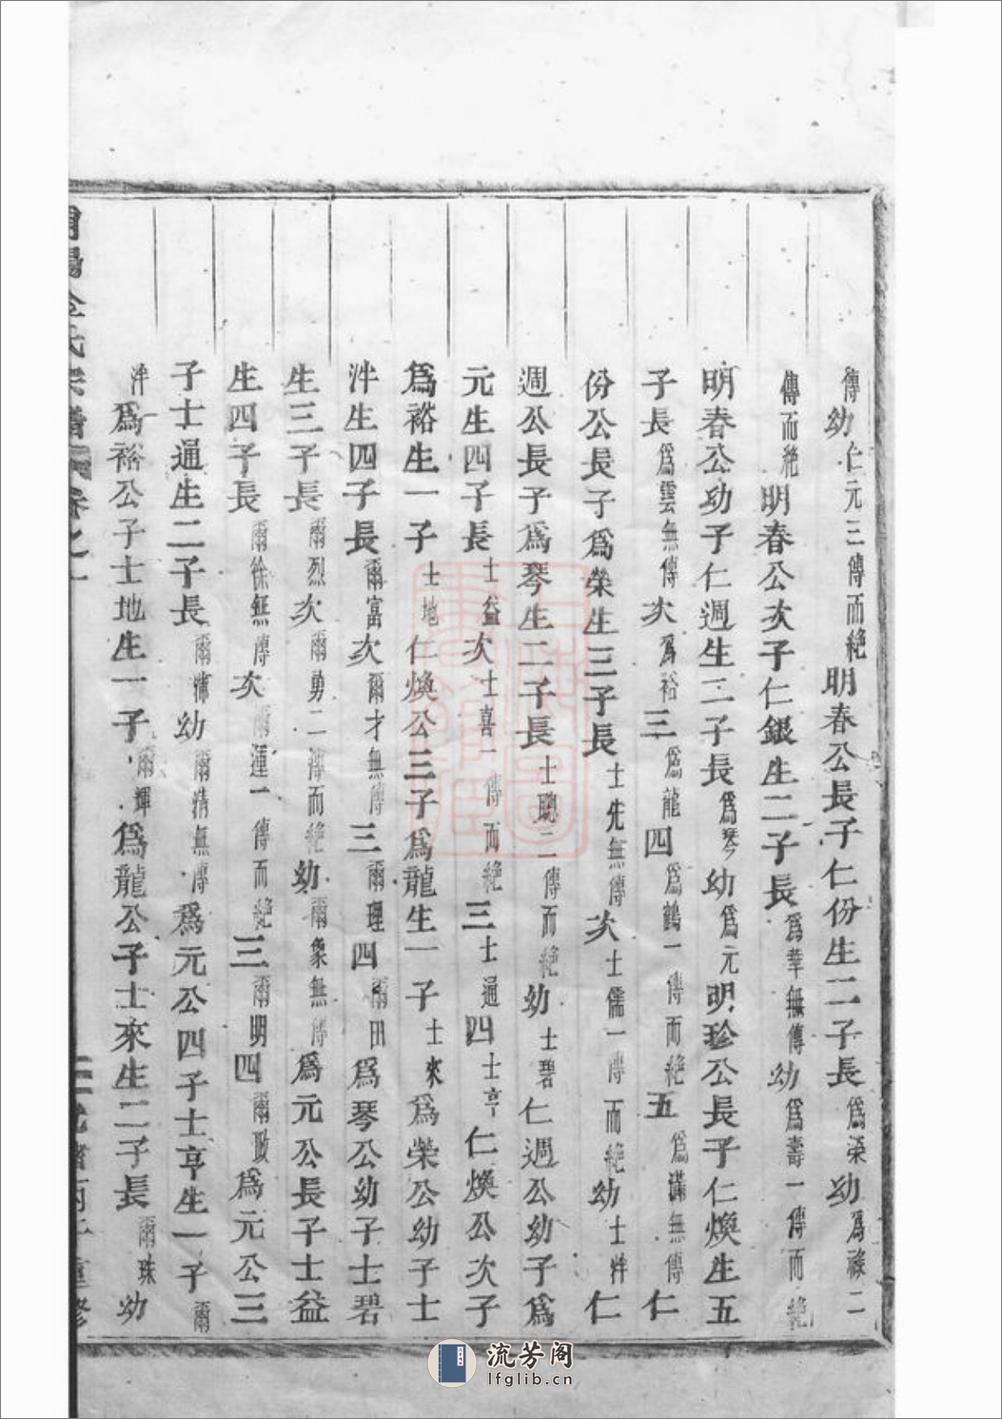 傳幼仁元三傳而絶明春公長子仁份生二子長爲榮幼爲祿二
傳而絶明春公次子仁銀生二子長爲華無傳幼爲壽一傳而絶
明春公幼子仁週生二子長爲琴幼爲元明珍公長子仁煥生五
子長爲雲無傳次爲裕三爲龍四爲鶴一傳而絶五爲滿無傳仁
份公長子爲榮生三子長士先無傳次士儒一傳而絶幼士泮仁
週公長子爲琴生二子長士聰二傳而絶幼士碧仁週公幼子爲
元生四子長士益次士喜一傳而絶三士通四士亨仁煥公次子
爲裕生一子士地仁煥公三子爲龍生一子士來爲榮公幼子士
泮生四子長爾富次爾才無傳三爾理四爾田爲琴公幼子士碧
生三子長爾烈次爾勇二傳而絶幼爾象無傳爲元公長子士益
生四子長爾徐無傳次爾運一傳而絶三爾明四爾政爲元公三
子士通生二子長爾沛幼爾清無傳爲元公四子士亨生一子爾
泮爲裕公子士地生一子爾輝爲龍公子士來生二子長爾珠幼
氏宗譜 卷之一
流芳阁
lfglib.cn